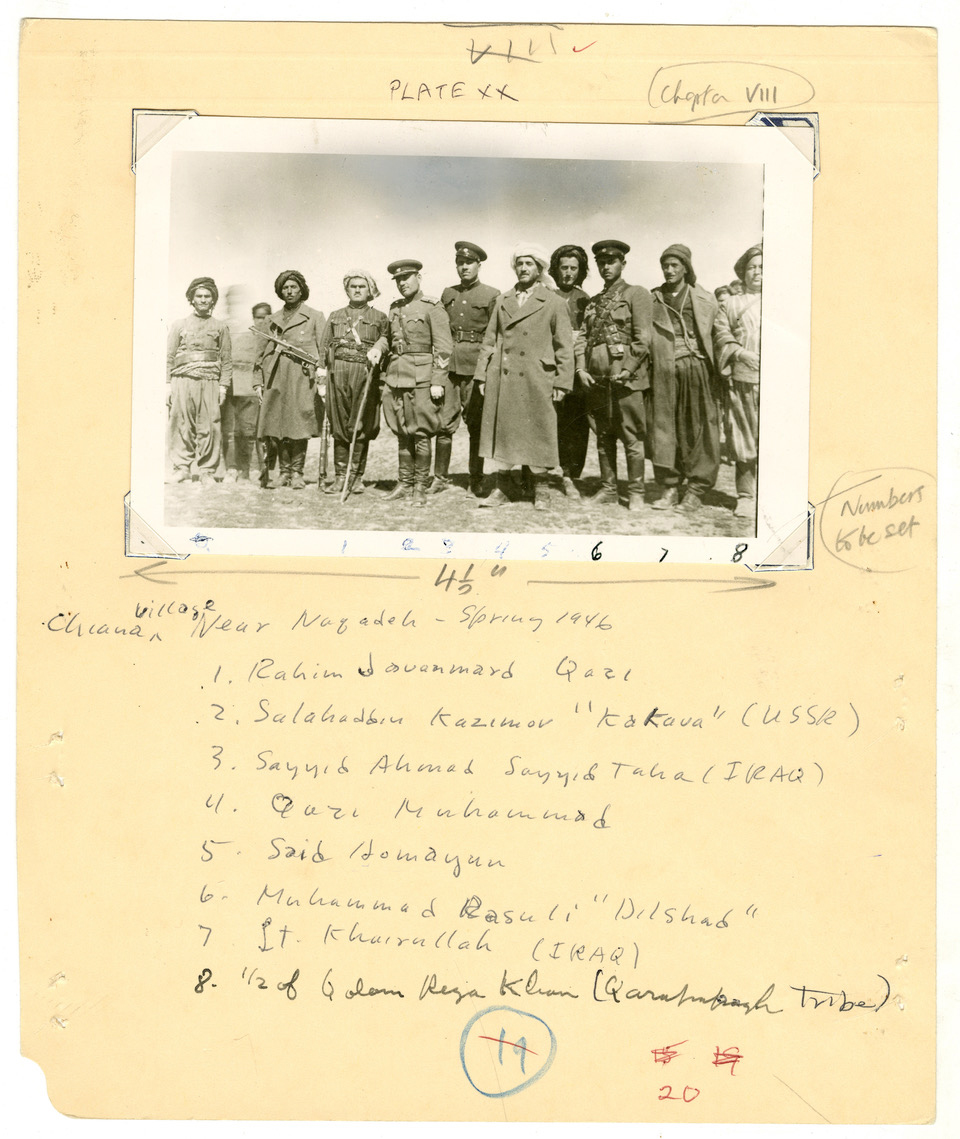 VIII
PLATE XX
Chapter VIII
Numbers to be set
1 2 3 4 5 6 7 8
4 1/2 "
Chiana village Near Naqadeh - Spring 1946
1. Rahim Javanmard Qazi
2. Salahaddin Kazimov "Kakava" (USSR)
3. Sayyid Ahmad Sayyid Taha (IRAQ)
4. Qazi Muhammad
5. Said Homayun
6. Muhammad Rasuli "Dilshad"
7 Lt. Khairullah (IRAQ)
8. 1/2 of Qolam Reza Khan (Qarahpapagh Tribe)
19
15 19
20